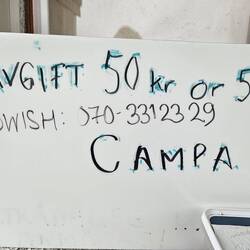 AVGIFT 50 kr or 5
SWISH: 070-3312329
CAMPA